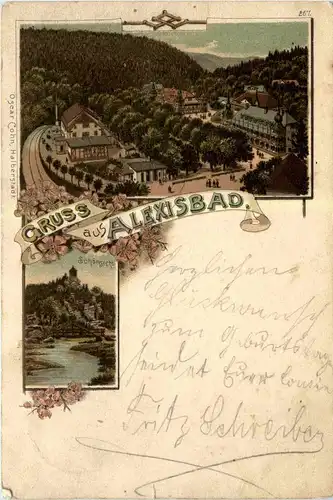 267.
Oscar Cohn, Halberstadt
GRUSS
aus ALEXISBAD.
Schönsicht
Herzlichen
Glückwunsch
zum Geburtstage
sendet Euer
Fritz Schreiber